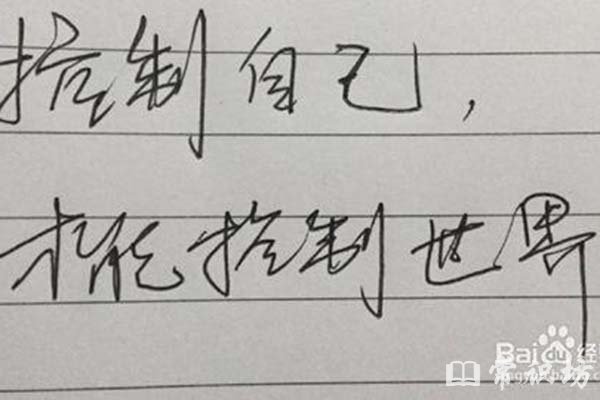 控制自己，
才能控制世界
Baidu 经
常识坊